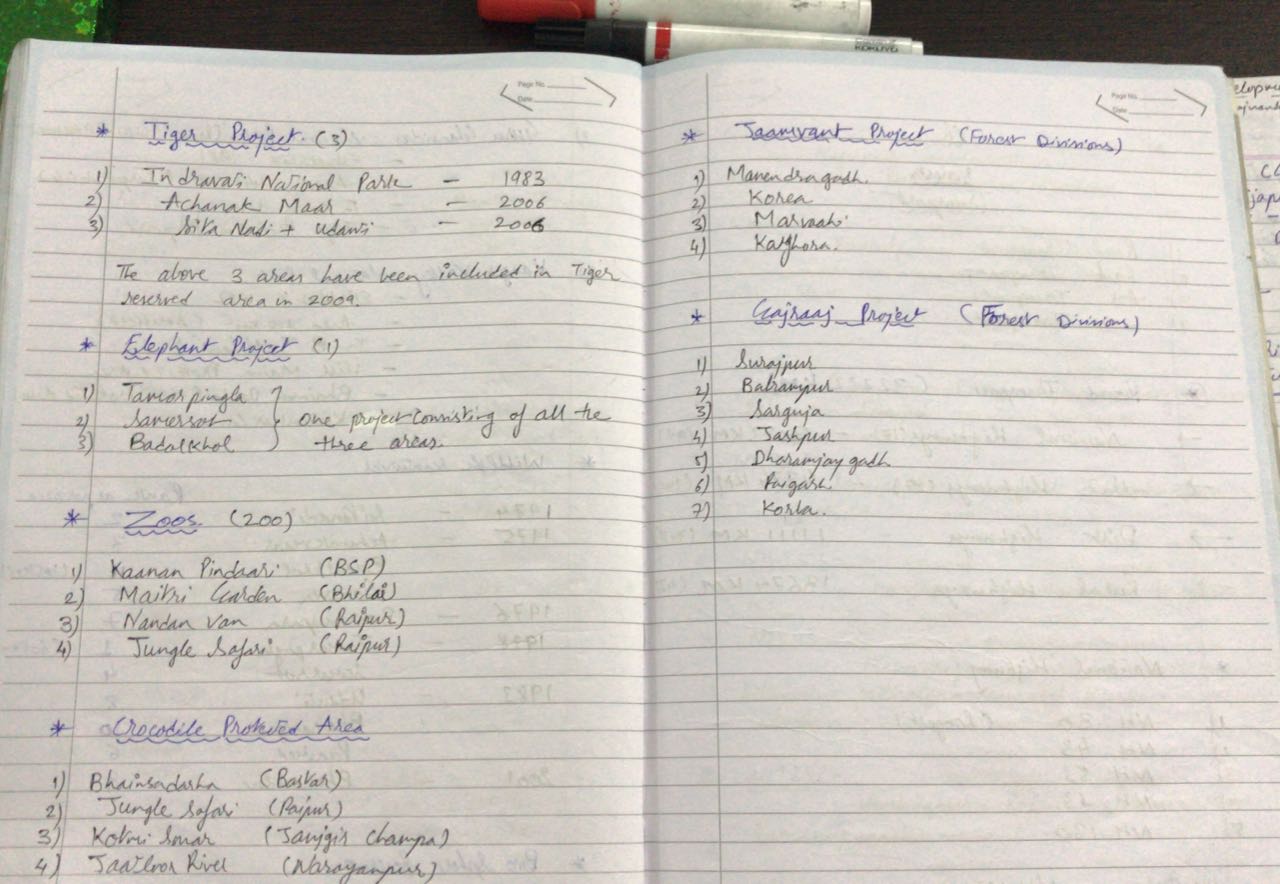 Page No.
Date
* Tiger Project. (3)
1) Indravati National Park - 1983
2) Achanak Maar - 2006
3) Sita Nadi + Udanti - 2006
The above 3 areas have been included in Tiger
reserved area in 2009.
* Elephant Project (1)
1) Tamor pingla
2) Samersot
3) Badalkhol
One project consisting of all the
three areas.
* Zoos (200)
1) Kaanan Pindaari (BSP)
2) Maitri Garden (Bhilai)
3) Nandan van (Raipur)
4) Jungle Safari (Raipur)
* Crocodile Protected Area
1) Bhainsadarha (Bastar)
2) Jungle Safari (Raipur)
3) Kotmi Sonar (Janjgir Champa)
4) River (Narayanpur)
Page No.
Date
* Jaamvant Project (Forest Divisions)
1) Manendragadh.
2) Korea
3) Marvaahi
4) Katghora.
* Gajraaj Project (Forest Divisions)
1) Surajpur
2) Balrampur
3) Sarguja
4) Jashpur
5) Dharamjaygadh
6) Raigarh
7) Korba.
KOKUYO